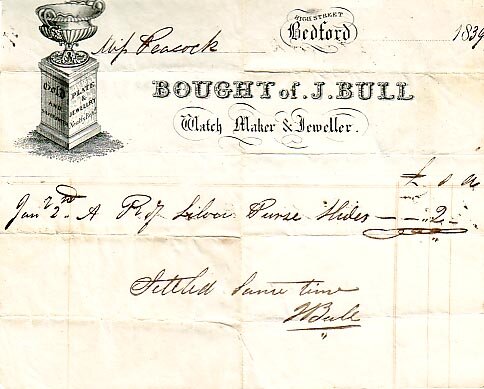 HIGH STREET
Bedford
1839
Miss Peacock
BOUGHT of J. BULL
Watch Maker & Jeweller.
GOLD
AND
PLATE
&
JEWELLERY
£ s d
Jany 22nd A Pr of Silver Purse Slides — - 2 -
Settled same time
J Bull